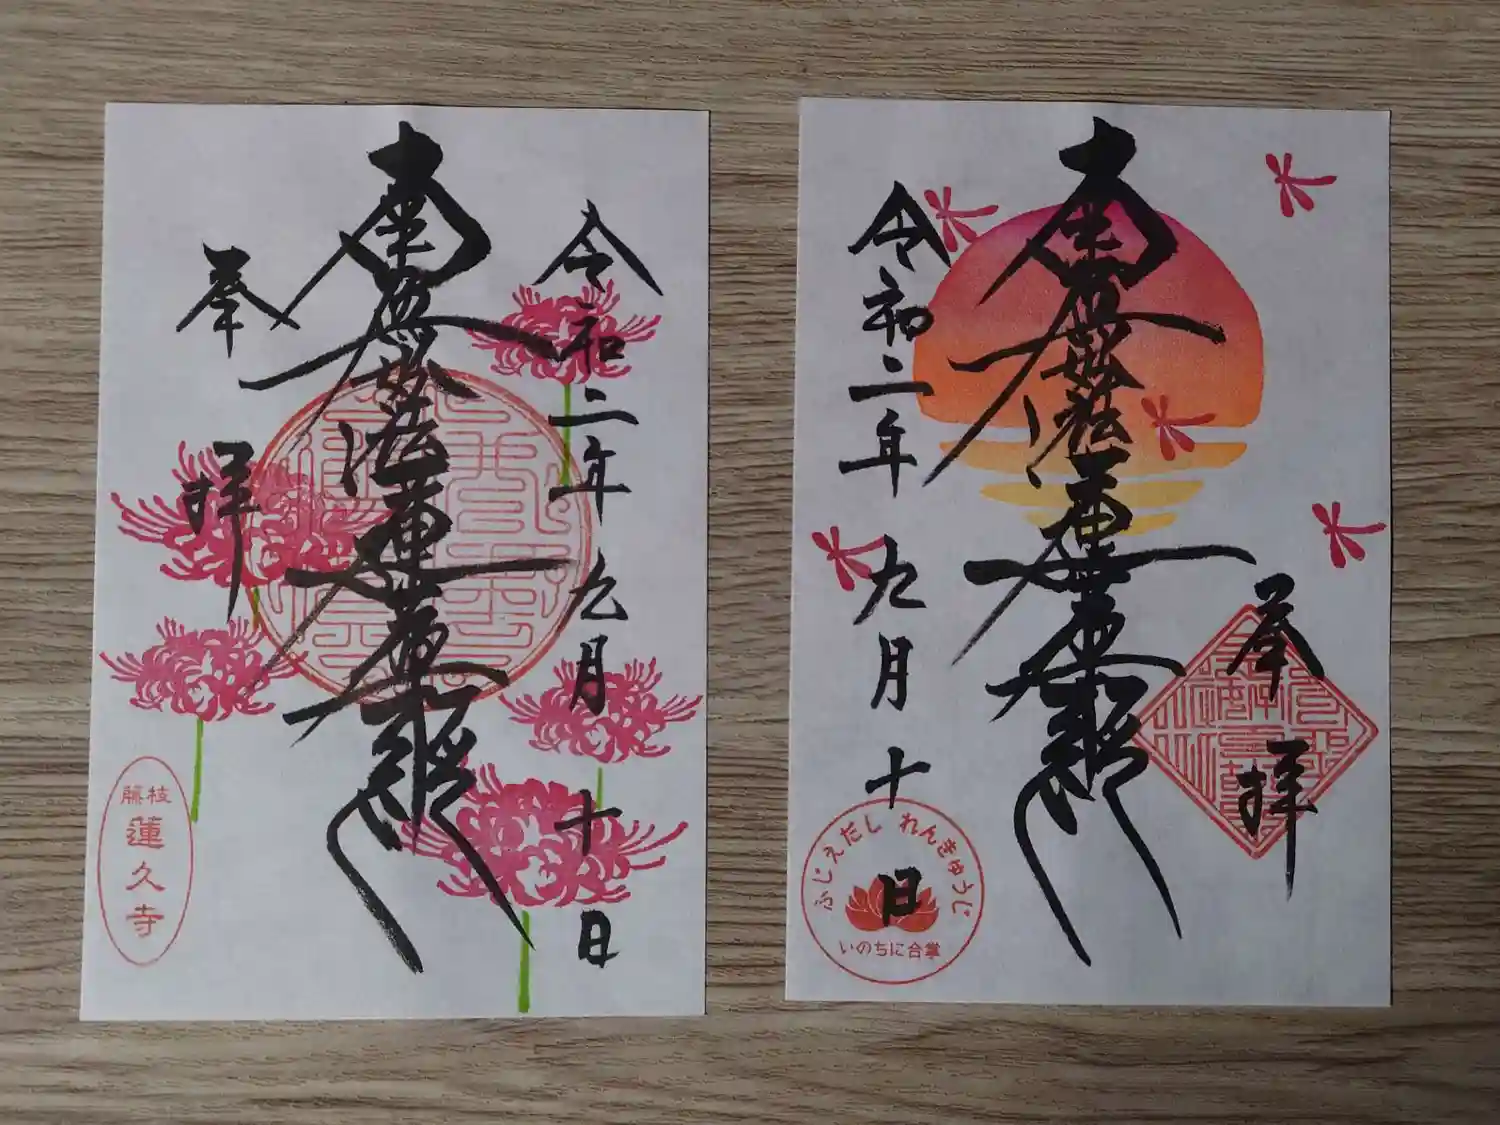 令和二年九月十日
南無妙法蓮華経
奉拝
藤枝
蓮久寺
奉拝
南無妙法蓮華経
令和二年九月十日
ふじえだし れんきゅうじ
いのちに合掌